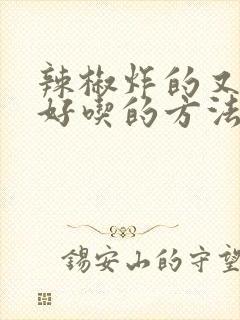 辣椒炸的又
好喫的方法
锡安山的守望